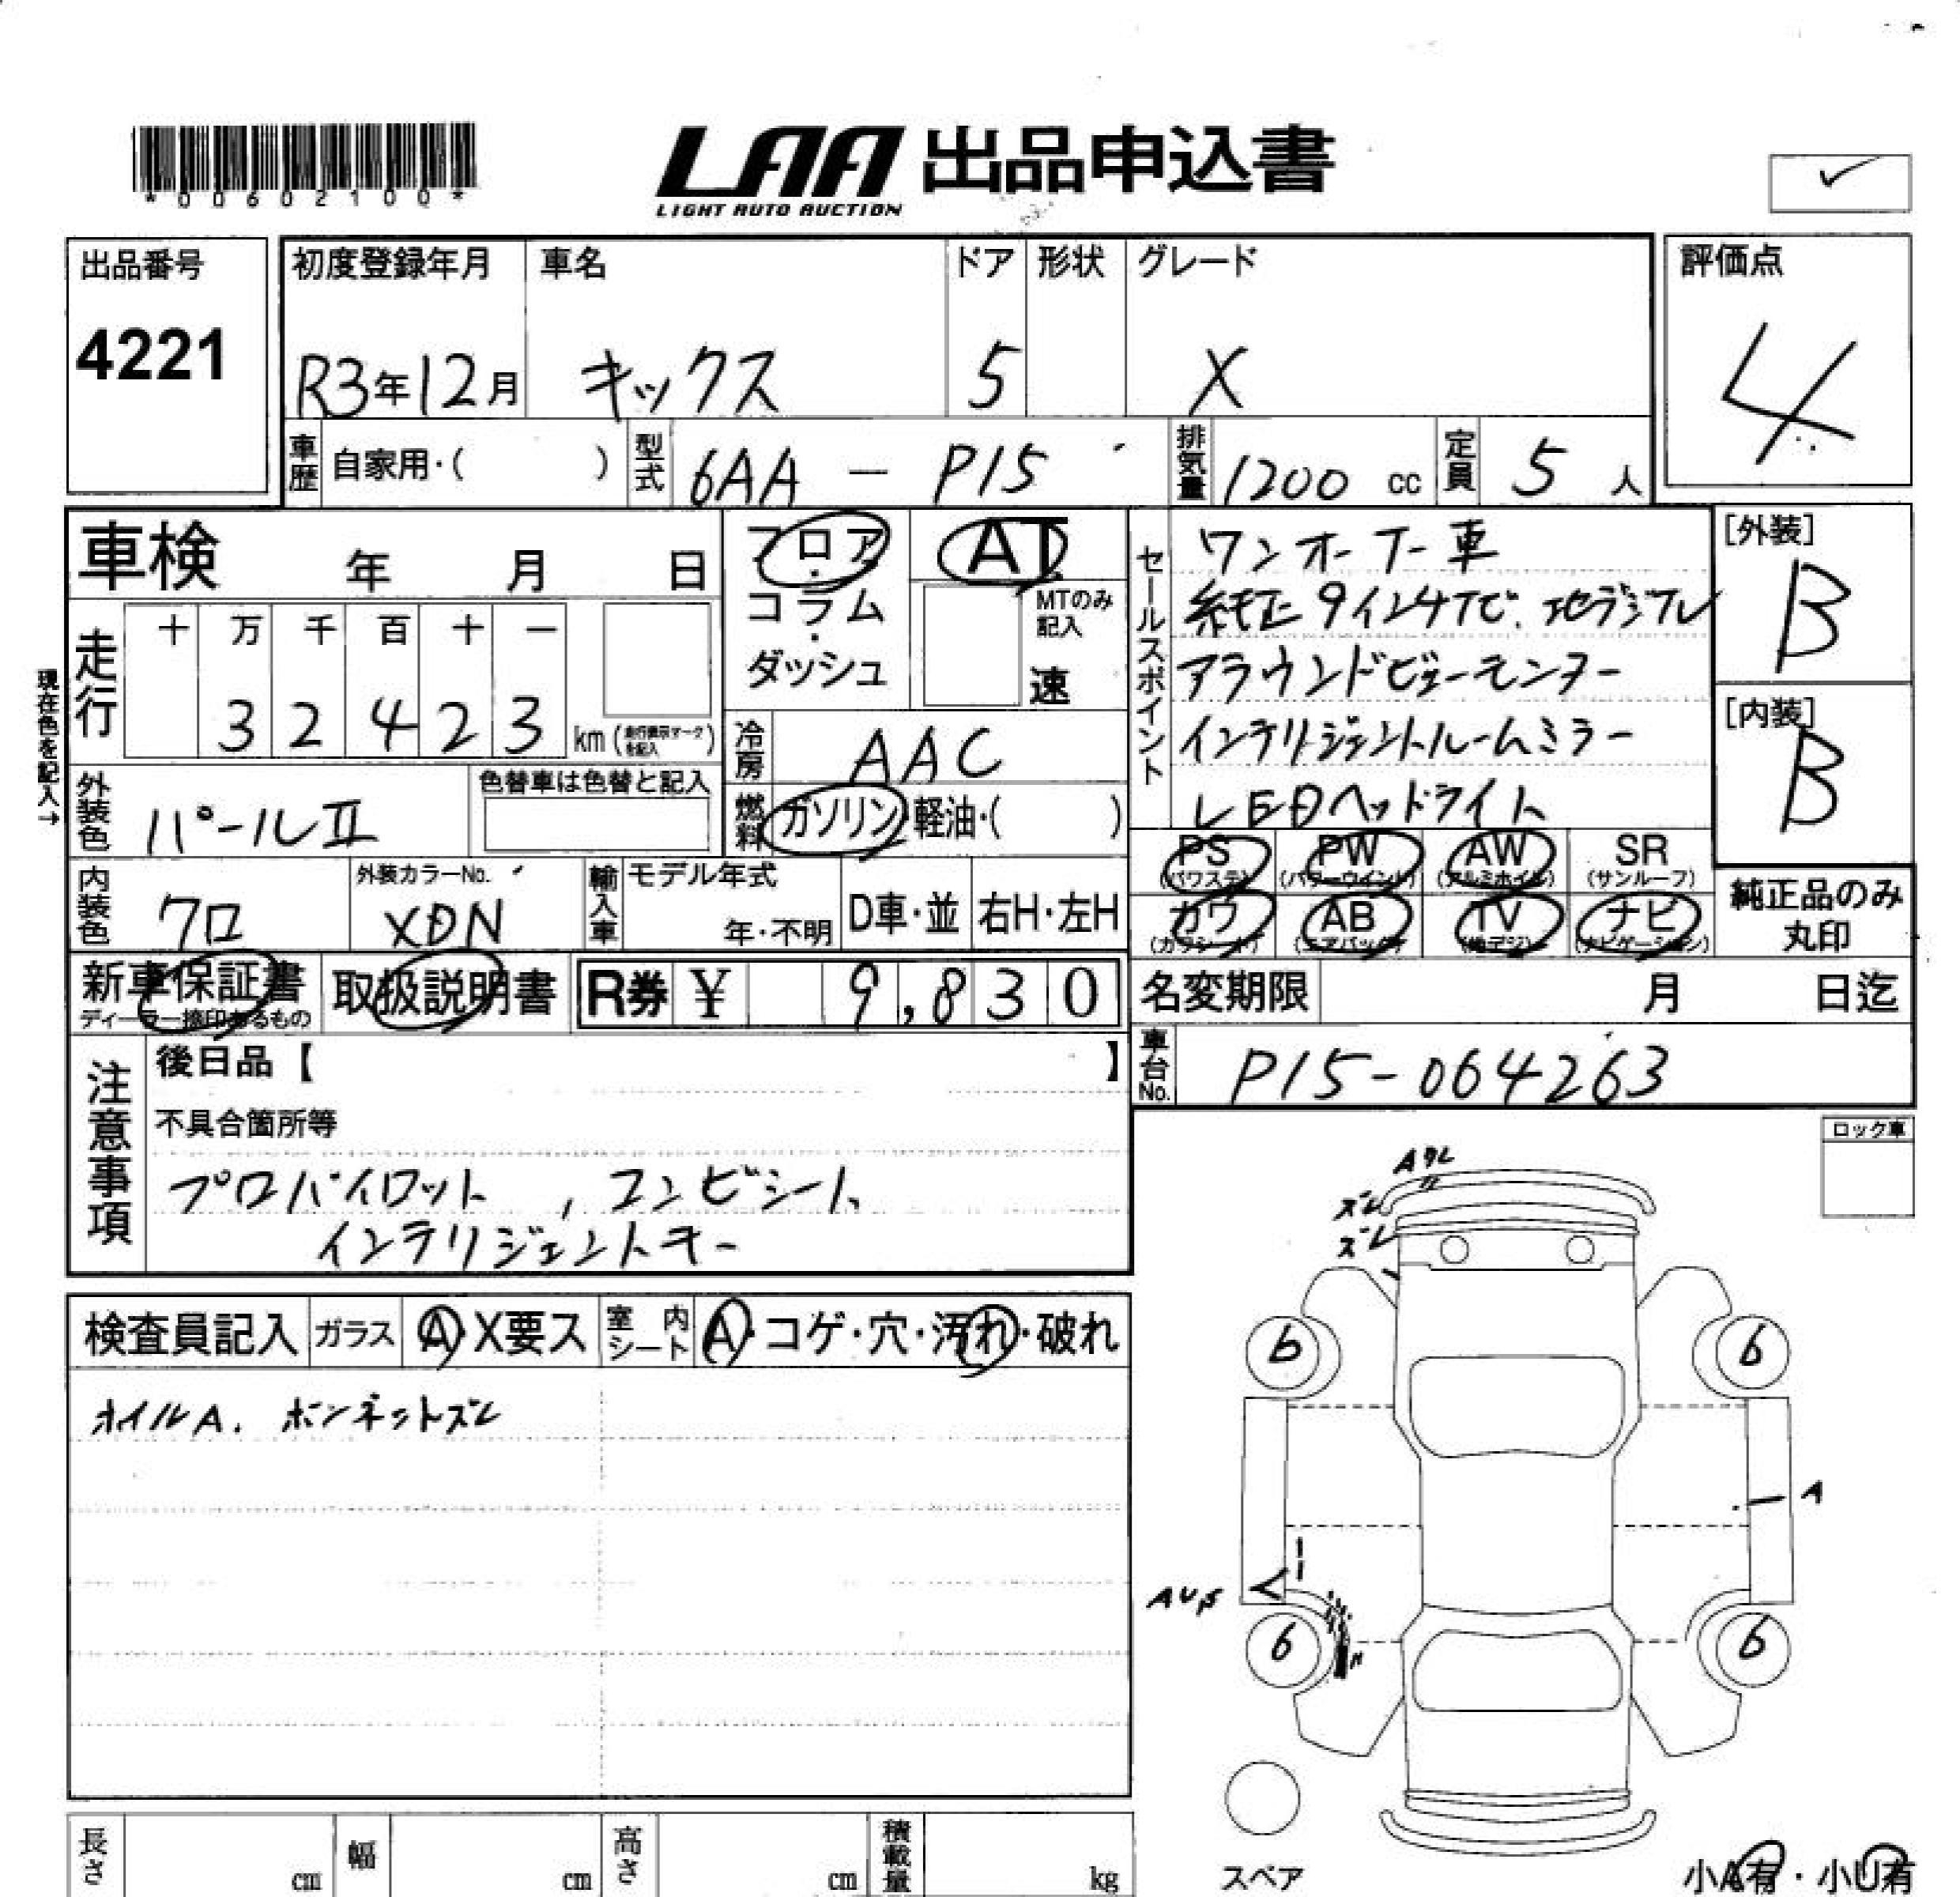 *00602100*
LAA 出品申込書
LIGHT AUTO AUCTION
出品番号
4221
初度登録年月
R3年12月
車名
キックス
ドア
5
形状
グレード
X
評価点
4
車歴 自家用・( )
型式 6AA - P15
排気量 1200 cc
定員 5 人
車検 年 月 日
走行
十 万 千 百 十 一
3 2 4 2 3 km (走行表示マークを記入)
現在色を記入→
外装色 パールⅡ
色替車は色替と記入
内装色 クロ
外装カラーNo.
XDN
フロア・コラム・ダッシュ
AT
MTのみ記入
速
冷房 AAC
燃料 ガソリン・軽油・( )
輸入車
モデル年式
年・不明
D車・並
右H・左H
セールスポイント
ワンオーナー車
純正9インチナビ.地デジTV
アラウンドビューモニター
インテリジェントルームミラー
LEDヘッドライト
[外装]
B
[内装]
B
PS (パワステ)
PW (パワーウインド)
AW (アルミホイル)
SR (サンルーフ)
カワ (カワシート)
AB (エアバック)
TV (地デジ)
ナビ (ナビゲーション)
純正品のみ
丸印
新車保証書
ディーラー捺印あるもの
取扱説明書
R券 ¥ 9,830
名変期限 月 日迄
車台No. P15-064263
注意事項
後日品【 】
不具合箇所等
プロパイロット , コンビシート、
インテリジェントキー
検査員記入
ガラス A・X要ス
室内シート A・コゲ・穴・汚れ・破れ
オイルA. ボンネットズレ
ロック車
Aタレ
ズレ
ズレ
6
6
A
6
6
スペア
小A有・小U有
長さ cm
幅 cm
高さ cm
積載量 kg